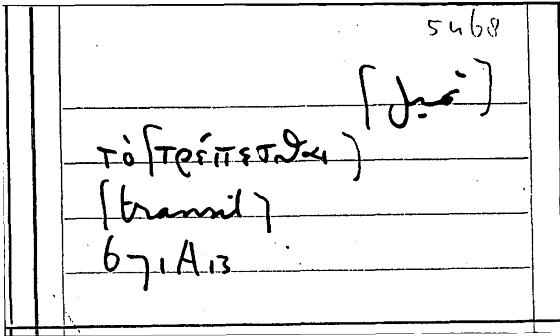 5468
τὸ [τρέπεσθαι]
[transit]
671A13